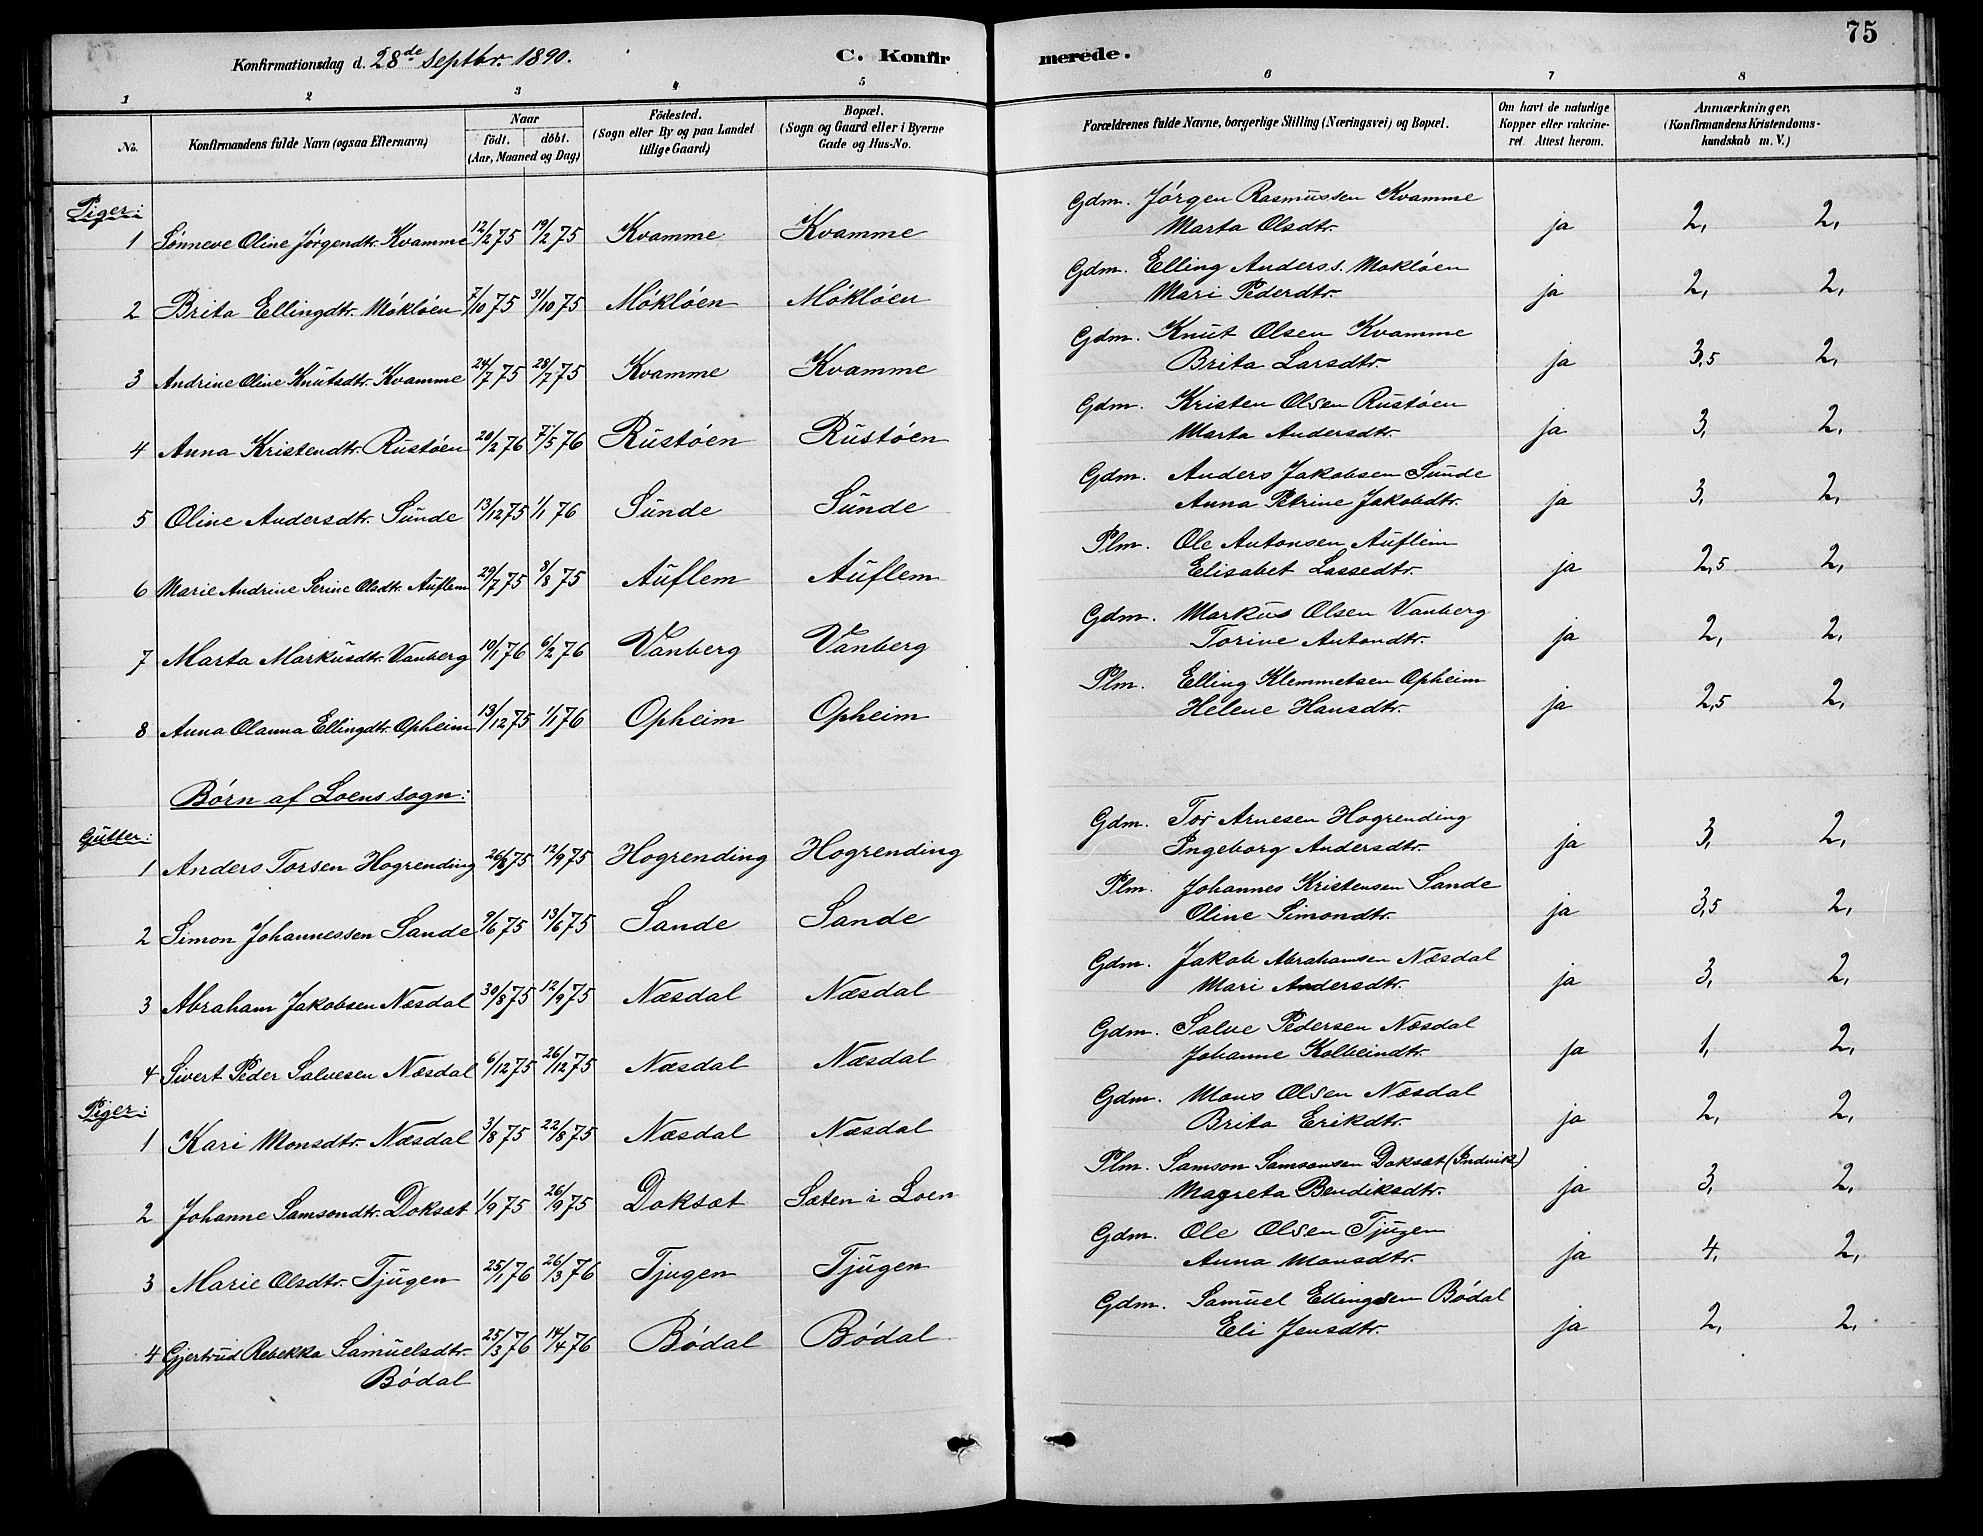 75
Konfirmationsdag d. 28de Septbr. 1890. C. Konfirmerede.
1 2 3 4 5 6 7 8
No. Konfirmandens fulde Navn (ogsaa Efternavn) Naar født. døbt. (Aar, Maaned og Dag) Fødested. (Sogn eller By og paa Landet tillige Gaard) Bopæl. (Sogn og Gaard eller i Byerne Gade og Hus-No. Forældrenes fulde Navne, borgerlige Stilling (Næringsvei) og Bopæl. Om havt de naturlige Kopper eller vakcineret. Attest herom. Anmærkninger. (Konfirmandens Kristendomskundskab m. V.)
Piger:
1 Sønneve Oline Jørgendtr. Kvamme 12/2 75 19/2 75 Kvamme Kvamme Gdm. Jørgen Rasmussen Kvamme Marta Olsdtr. ja 2, 2,
2 Brita Ellingdtr. Møkløen 7/10 75 31/10 75 Møkløen Møkløen Gdm. Elling Anders s. Mokløen Mari Pederdtr. ja 2, 2,
3 Andrine Oline Knutsdtr. Kvamme 24/7 75 28/7 75 Kvamme Kvamme Gdm. Knut Olsen Kvamme Brita Larsdtr. ja 3,5 2,
4 Anna Kristendtr. Rustøen 20/2 76 7/5 76 Rustøen Rustøen Gdm. Kristen Olsen Rustøen Marta Andersdtr. ja 3, 2,
5 Oline Andersdtr. Sunde 13/12 75 1/1 76 Sunde Sunde Gdm. Anders Jakobsen Sunde Anna Petrine Jakobdtr. ja 3, 2,
6 Marie Andrine Serine Olsdtr. Auflem 29/7 75 8/8 75 Auflem Auflem Plm. Ole Antonsen Auflem Elisabet Lassedtr. ja 2,5 2,
7 Marta Markusdtr. Vanberg 10/1 76 6/2 76 Vanberg Vanberg Gdm. Markus Olsen Vanberg Torine Antondtr. ja 2, 2,
8 Anna Olanna Ellingdtr. Opheim 13/12 75 1/1 76 Opheim Opheim Plm. Elling Klemmetsen Opheim Helene Hansdtr. ja 2,5 2,
Børn af Loens sogn:
Gutter:
1 Anders Torsen Hogrending 26/8 75 12/9 75 Hogrending Hogrending Gdm. Tor Arnesen Hogrending Ingeborg Andersdtr. ja 3, 2,
2 Simon Johannessen Sande 9/6 75 13/6 75 Sande Sande Plm. Johannes Kristensen Sande Oline Simondtr. ja 3,5 2,
3 Abraham Jakobsen Næsdal 30/8 75 12/9 75 Næsdal Næsdal Gdm. Jakob Abrahamsen Næsdal Mari Andersdtr. ja 3, 2,
4 Sivert Peder Salvesen Næsdal 6/12 75 26/12 75 Næsdal Næsdal Gdm. Salve Pedersen Næsdal Johanne Kolbeindtr. ja 1, 2,
Piger:
1 Kari Monsdtr. Næsdal 3/8 75 22/8 75 Næsdal Næsdal Gdm. Mons Olsen Næsdal Brita Erikdtr. ja 2, 2,
2 Johanne Samsondtr. Doksæt 1/9 75 26/9 75 Doksæt Sæten i Loen Plm. Samson Samsonsen Doksæt (Indvik) Magreta Bendiksdtr. ja 3, 2,
3 Marie Olsdtr. Tjugen 25/1 76 26/3 76 Tjugen Tjugen Gdm. Ole Olsen Tjugen Anna Monsdtr. ja 4, 2,
4 Gjertrud Rebekka Samuelsdtr. Bødal 25/3 76 14/4 76 Bødal Bødal Gdm. Samuel Ellingsen Bødal Eli Jensdtr. ja 2, 2,